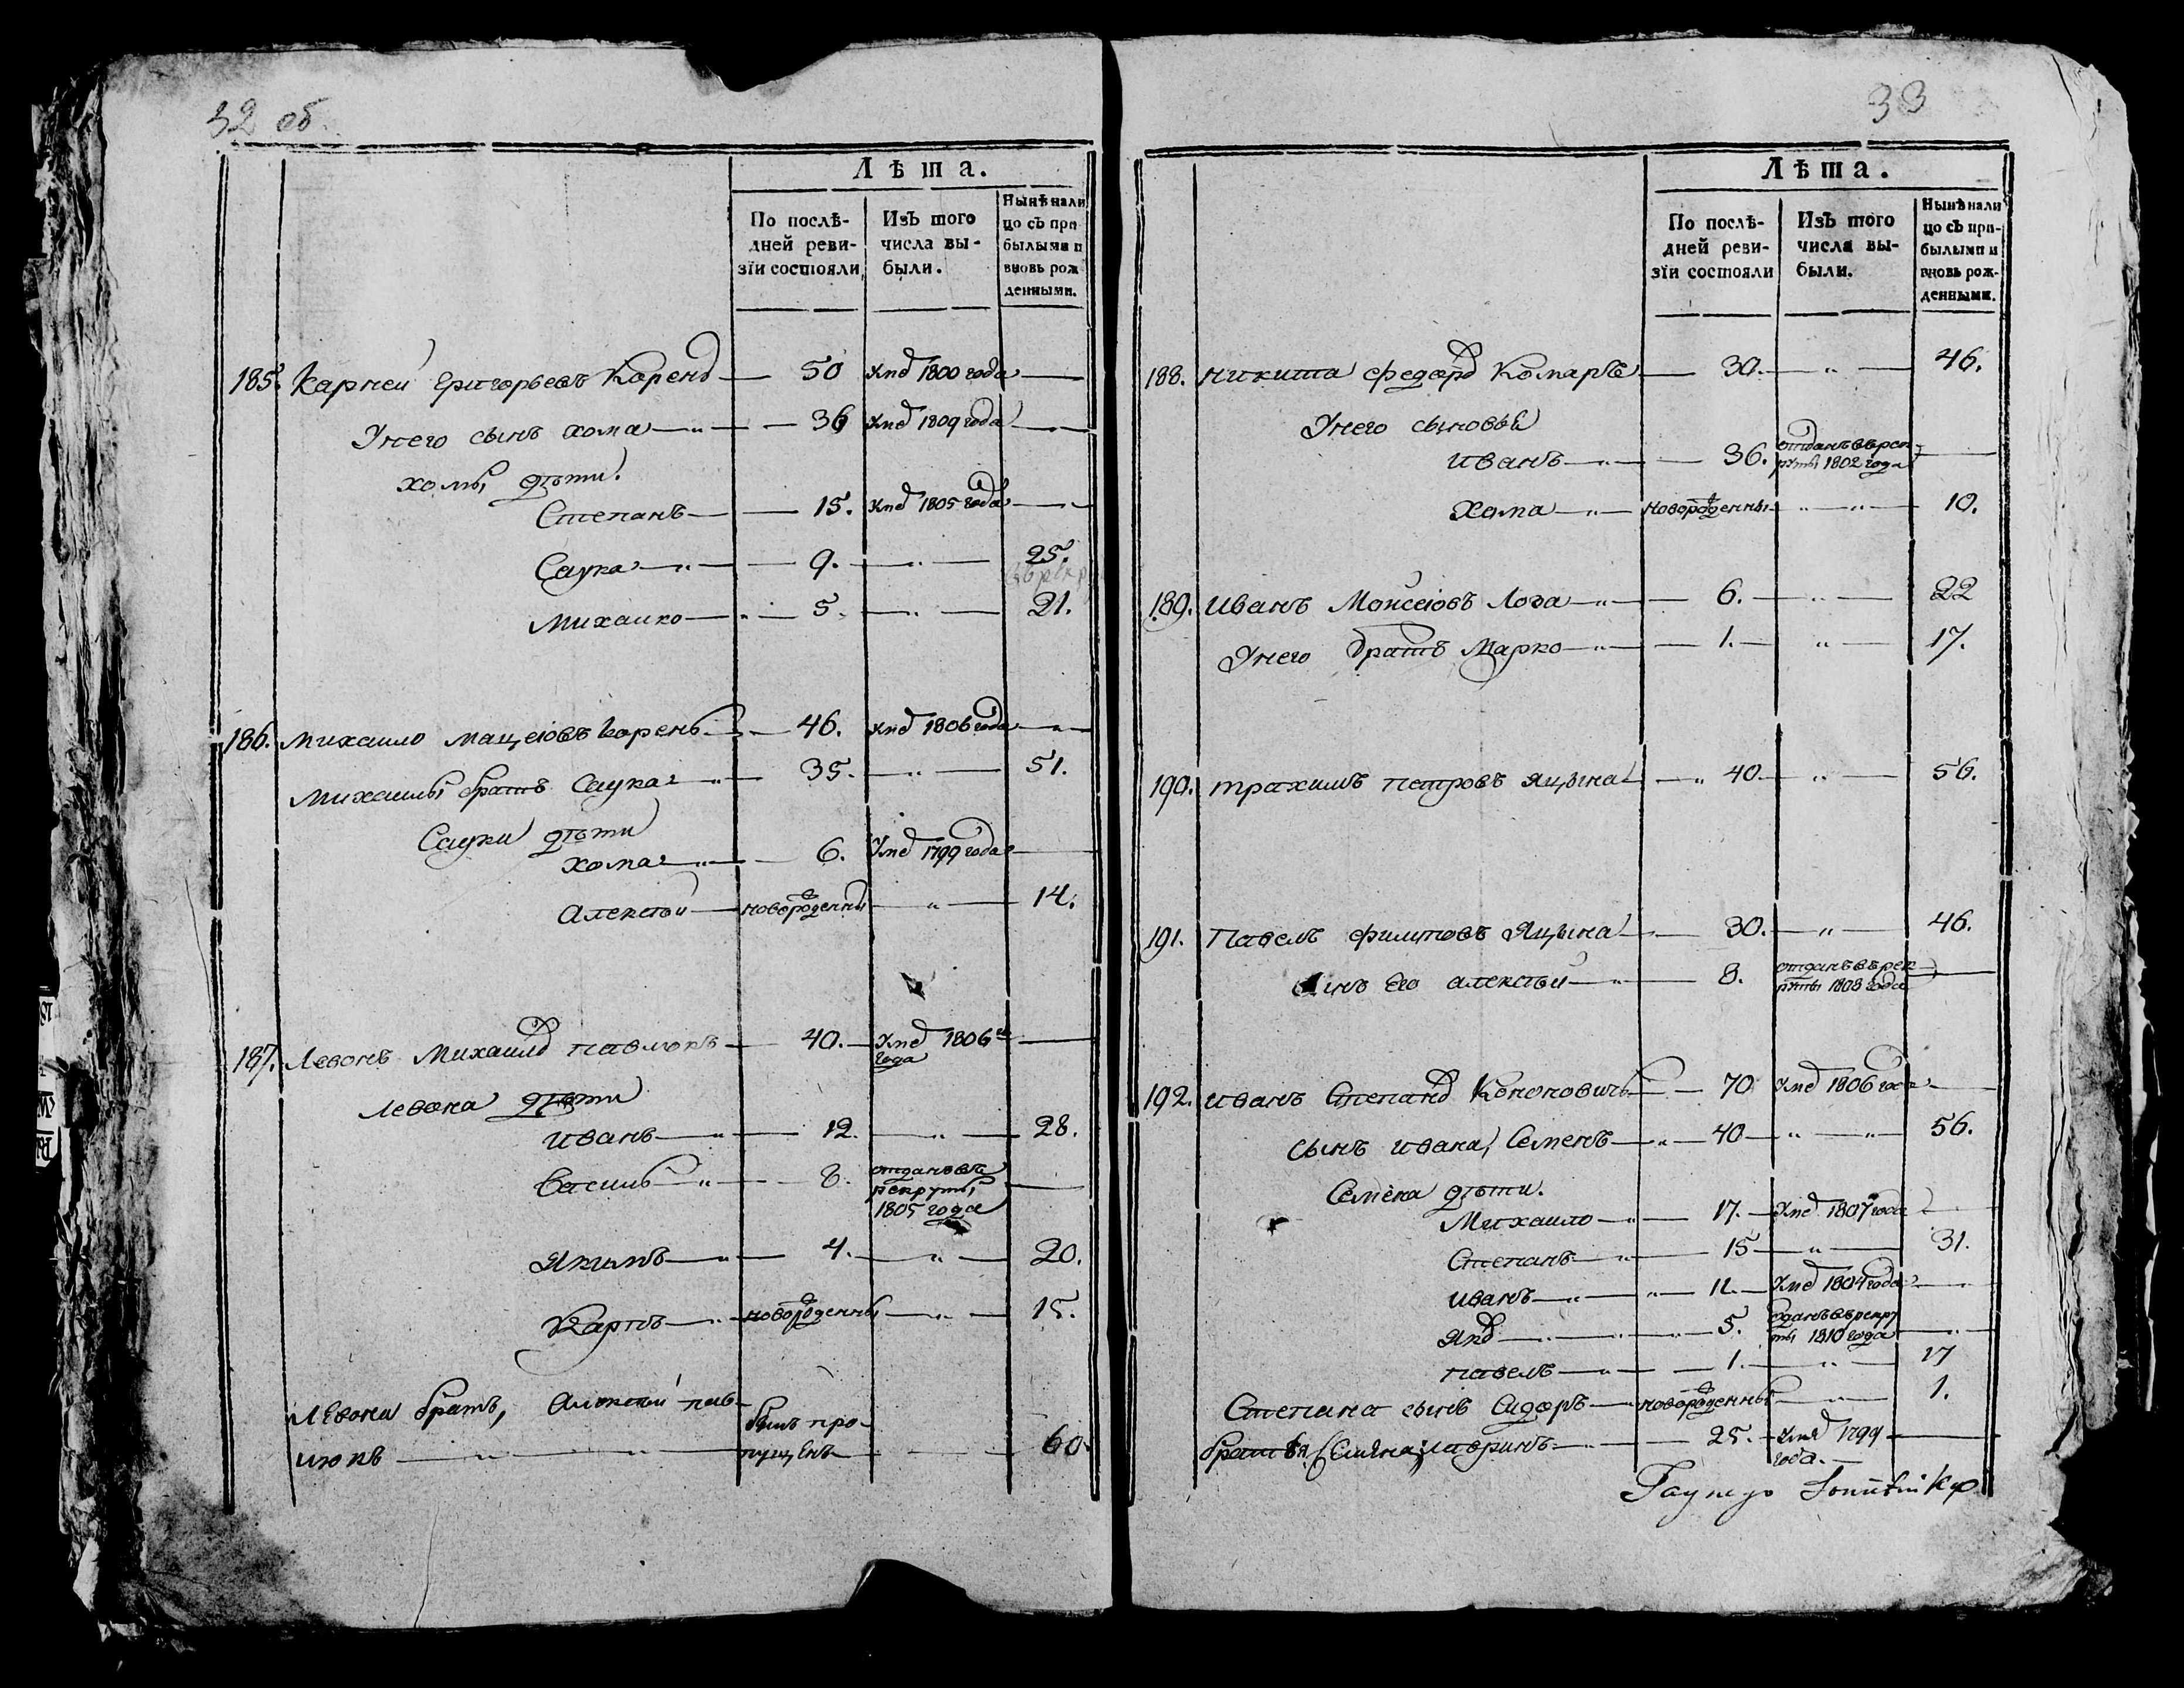 32 об.
Лѣта.
По послѣ-
дней реви-
зїи состояли
Изъ того
числа вы-
были.
Нынѣ нали
цо съ при
былыми и
вновь рож
денными.
185. Карней Григорьевъ Корень — 50 Умре 1800 года —
Унего сынъ Хома — " — 36 Умре 1809 года —
Хомы дѣти.
Степанъ — 15. Умре 1805 года —
Саука — " — 9. — " — 25.
Михаико — " — 5. — " — 21.
186. Михаило Мацеювъ Корень — 46. Умре 1806 года — " —
Михаилы братъ Саука — " — 35. — " — 51.
Сауки дѣти
Хома — " — 6. Умре 1799 года —
Алексѣй — новорожденны — " — 14.
187. Левонъ Михаило Павлюкъ — 40. — Умре 1806
года —
Левона дѣти
Иванъ — " — 12. — " — 28.
Василь — " — 8. отданъ въ
рекруты
1805 года —
Якимъ — " — 4. — " — 20.
Карпъ — " — новорожденны — " — 15.
Левона братъ, Алексѣй Пав-
люкъ — " — " — былъ про-
пущенъ — 60.
33
Лѣта.
По послѣ-
дней реви-
зїи состояли
Изъ того
числа вы-
были.
Нынѣ нали
цо съ при-
былыми и
вновь рож-
денными.
188. Никита Федоро Комаръ — 30. — " — 46.
Унего сыновья
Иванъ — " — 36. отданъ въ рек
руты 1802 года —
Хома — " — новорожденны — " — " — 10.
189. Иванъ Моисеювъ Лоза — " — 6. — " — 22
Унего братъ Марко — " — 1. — " — 17.
190. Трахимъ Петровъ Яцына — " 40. — " — 56.
191. Павелъ Филиповъ Яцына — 30. — " — 46.
Сынъ Его Алексѣй — " — 8. отданъ въ рек
руты 1808 года —
192. Иванъ Степано Кононовичъ — 70 Умре 1806 года —
Сынъ Ивана, Семенъ — " — 40 — " — " — 56.
Семена дѣти.
Михаило — " — 17. — Умре 1807 года —
Степанъ — " — 15 — " — 31.
Иванъ — " — " 11. — Умре 1804 года —
Яко — " — " — 5. отданъ въ рекру
ты 1810 года — " —
Павелъ — " — 1. — " — 17
Степана сынъ Сидоръ — новорожденны — " — 1.
братья Семена, Лавринъ — " — 25. — Умре 1799
года. —